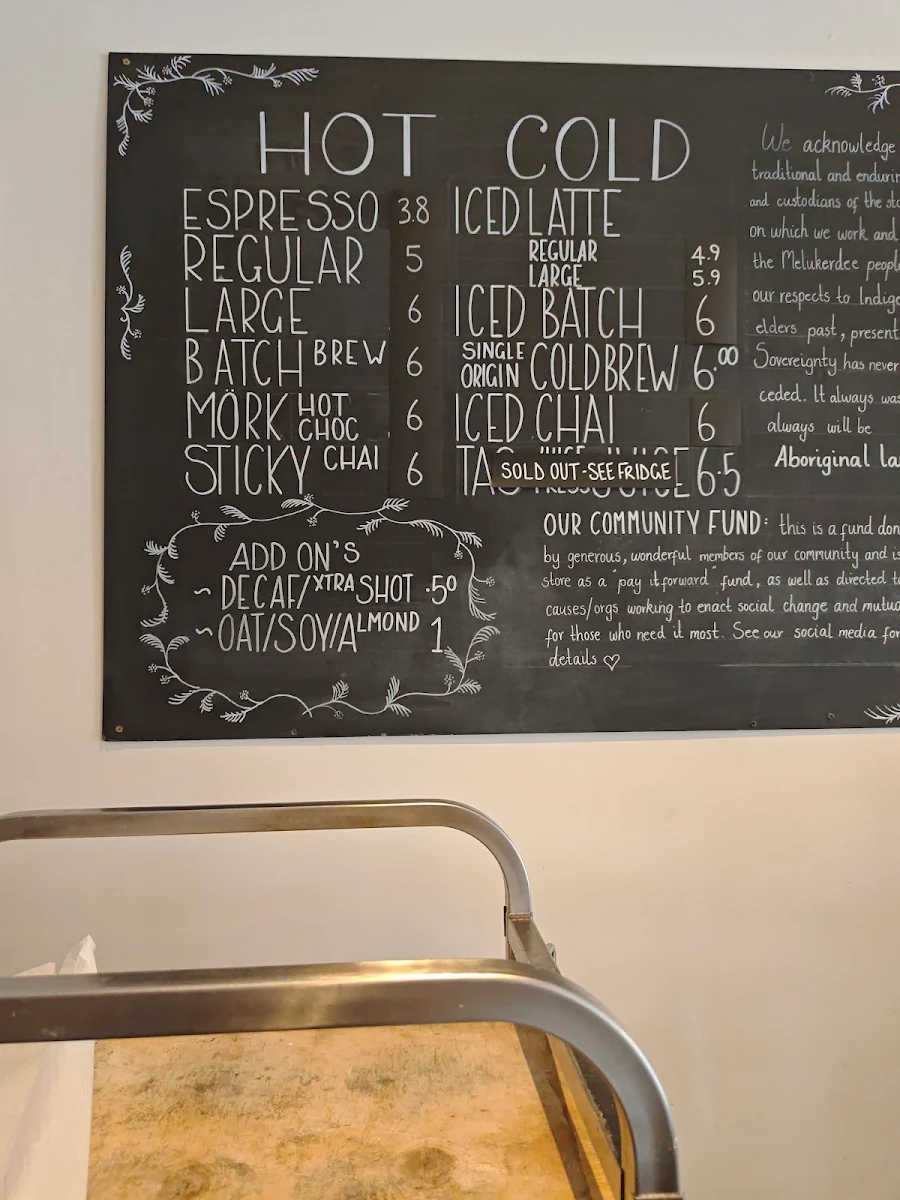 HOT
ESPRESSO 3.8
REGULAR 5
LARGE 6
BATCH BREW 6
MÖRK HOT CHOC 6
STICKY CHAI 6
ADD ON'S
~ DECAF/XTRA SHOT .50
~ OAT/SOY/ALMOND 1
COLD
ICED LATTE
REGULAR 4.9
LARGE 5.9
ICED BATCH 6
SINGLE ORIGIN COLDBREW 6.00
ICED CHAI 6
SOLD OUT-SEE FRIDGE 6.5
We acknowledge
traditional and
and custodians of the
on which we work and
the Melukerdee
our respects to
elders past, present
Sovereignty has never
ceded. It always was
always will be
Aboriginal
OUR COMMUNITY FUND: this is a fund
by generous, wonderful members of our community and is
store as a "pay it forward" fund, as well as directed
causes/orgs working to enact social change and
for those who need it most. See our social media for
details ♡